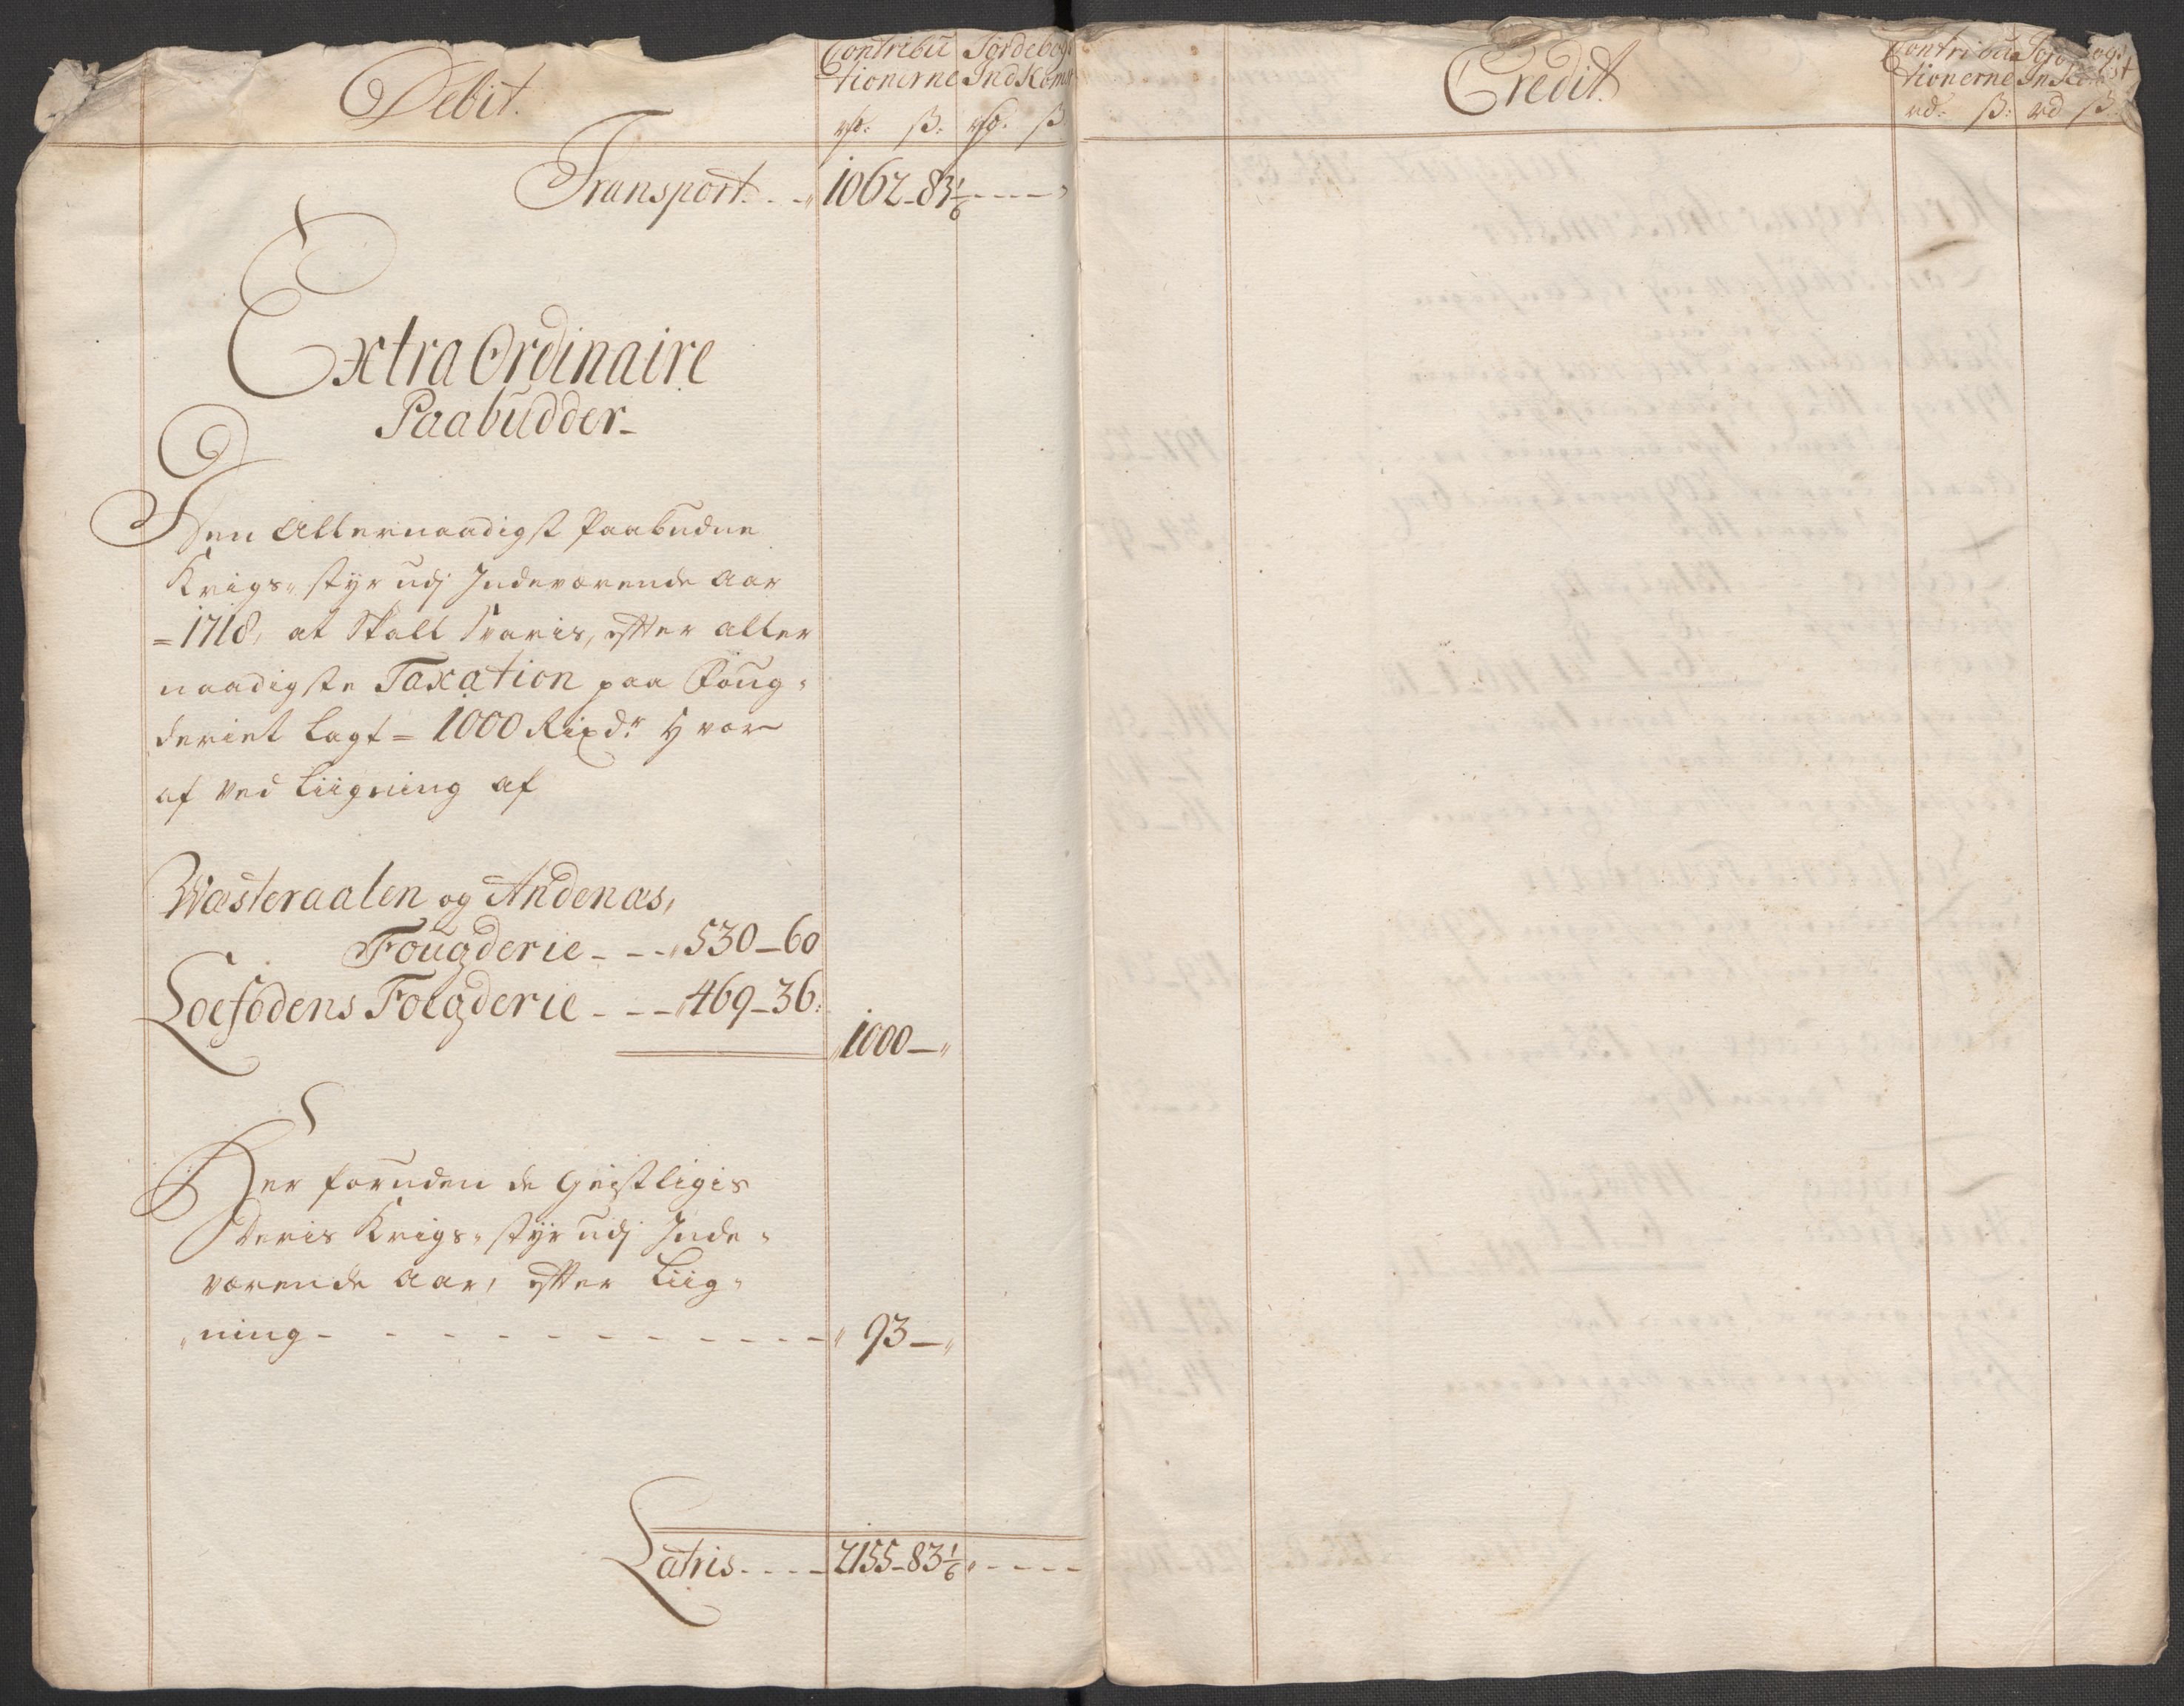 Debit.
Contribu Jordebogs
tionerne Indkomst
rd: ß: rd. ß
Transport. . . 1062 - 83 1/6 - - - -
Extra Ordinaire
Paabudder -
Den Allernaadigst Paabudne
Krigs, styr udj Indeværende Aar
= 1718, at Skall Svaris, efter aller
naadigste Taxation paa Foug=
deriet Lagt = 1000 Rixdr hvor
af ved Liigning af
Wæsteraalen og Andenæs,
Fougderie - - - 530 - 60
Loefodens Foegderie - - - 469 - 36:
1000 - "
Her foruden de Geistligis
Deris Krigs, styr udj Inde=
værende Aar, efter Liig=
ning - - - - - - - - - - " 93 - "
Latris. . . . 2155 - 83 1/6 " - - - -
Credit.
Contribu Jordebogs
tionerne Indkomst
rd: ß: rd ß: